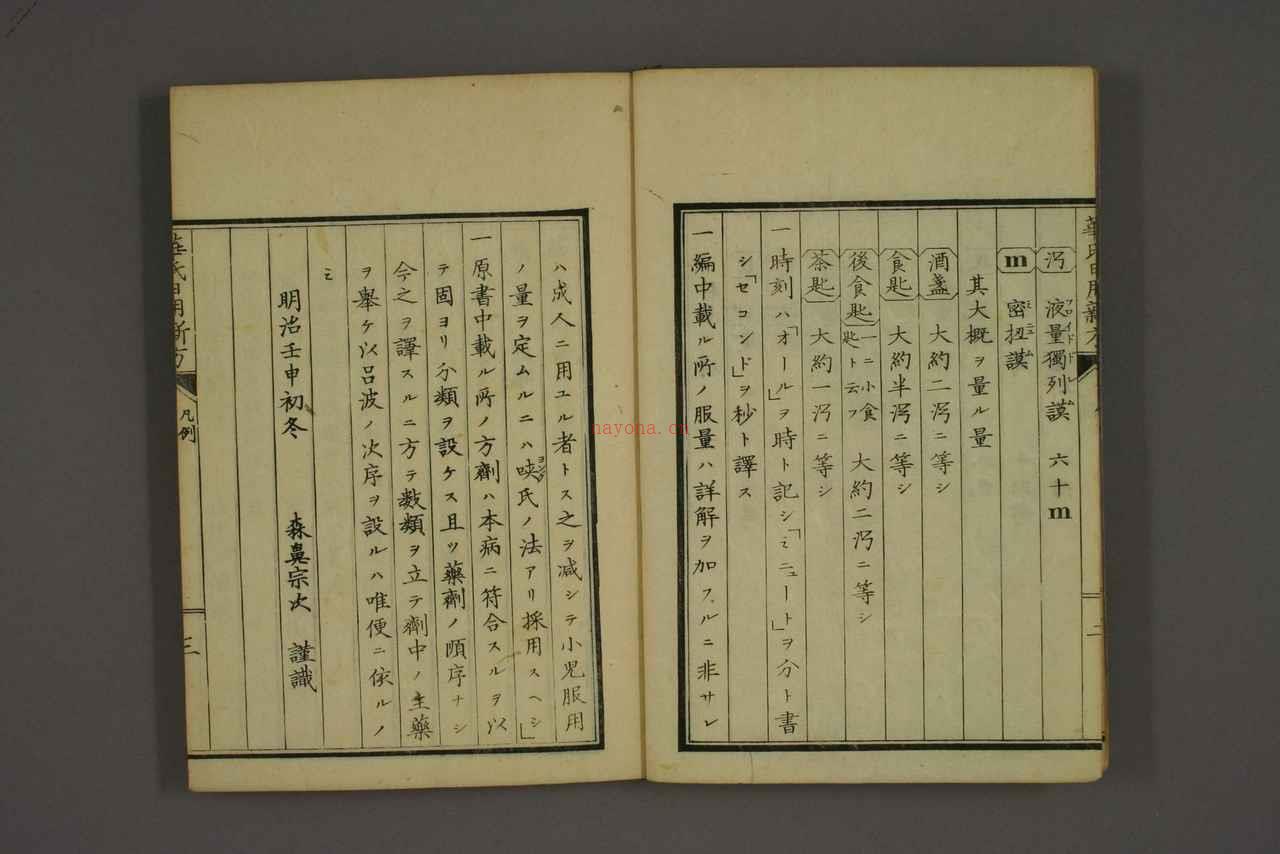 㕮 液量獨列謨 六十m
m 密扭謨
其大概ヲ量ル量
酒盞 大約二㕮ニ等シ
食匙 大約半㕮ニ等シ
後食匙 一ニ小食匙ト云フ 大約二㕮ニ等シ
茶匙 大約一㕮ニ等シ
一時刻ハ「オール」ヲ時ト記シ「ミニュート」ヲ分ト書
シ「セコンド」ヲ秒ト譯ス
一編中載ル所ノ服量ハ詳解ヲ加フルニ非サレ
ハ成人ニ用ユル者トス之ヲ減シテ小児服用
ノ量ヲ定ムルニハ氏ノ法アリ採用スヘシ」
一原書中載ル所ノ方劑ハ本病ニ符合スルヲ以
テ固ヨリ分類ヲ設ケス且ツ藥劑ノ順序ナシ
今之ヲ譯スルニ方テ数類ヲ立テ劑中ノ主藥
ヲ舉ケ以呂波ノ次序ヲ設ルハ唯便ニ依ルノ
ミ
明治壬申初冬
森鼻宗次 謹識
華氏日用新方
凡例
三
nayona.cn